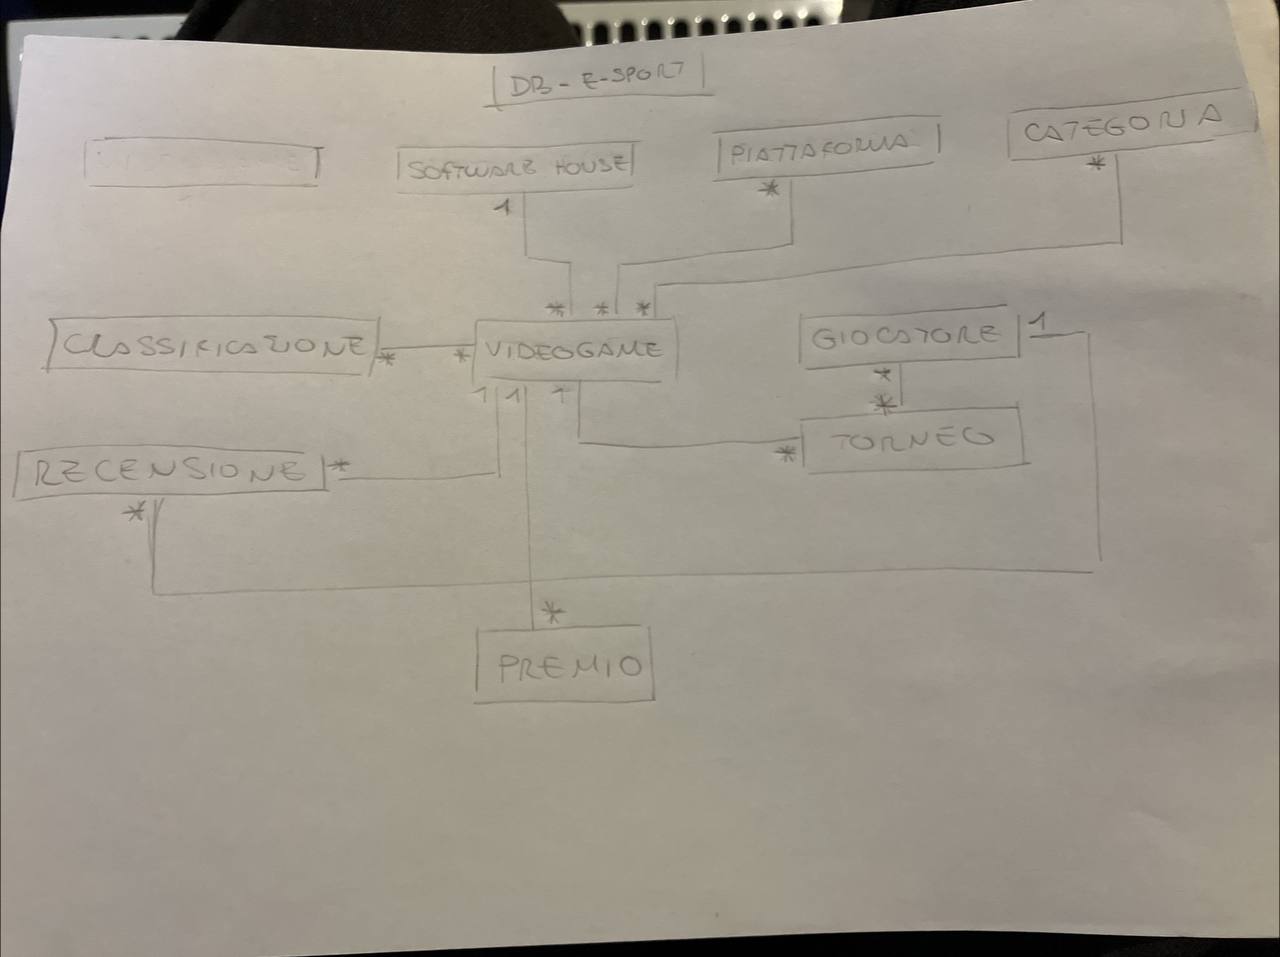 DB - E-SPORT
SOFTWARE HOUSE
PIATTAFORMA
CATEGORIA
1
*
*
*
*
*
CLASSIFICAZIONE
*
*
VIDEOGAME
GIOCATORE
1
1
1
1
*
*
*
TORNEO
RECENSIONE
*
*
*
PREMIO